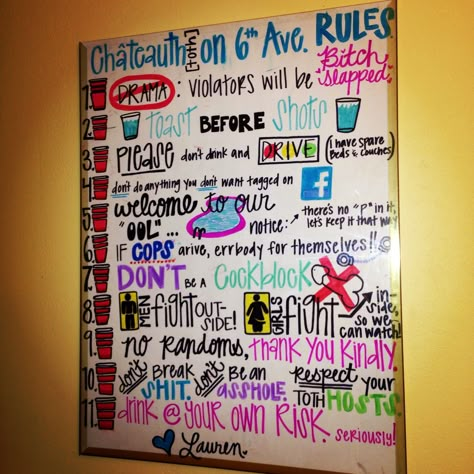 Châteauth [toth] on 6th Ave. RULES.
1. DRAMA: violators will be "Bitch slapped."
2. Toast BEFORE Shots
3. Please don't drink and DRIVE (i have spare Beds & Couches)
4. don't do anything you don't want tagged on f
5. welcome to our
"OOL"... notice: there's no "P" in it, let's keep it that way
6. IF COPS arive, errbody for themselves!!
7. DON'T BE A COCKBLOCK
8. MEN fight OUTSIDE! GIRLS fight inside, so we can watch!
9. no randoms, thank you kindly.
10. don't BREAK SHIT. don't BE an ASSHOLE. Respect your TOTH HOSTS.
11. drink @ your own RISK. seriously!
Lauren.